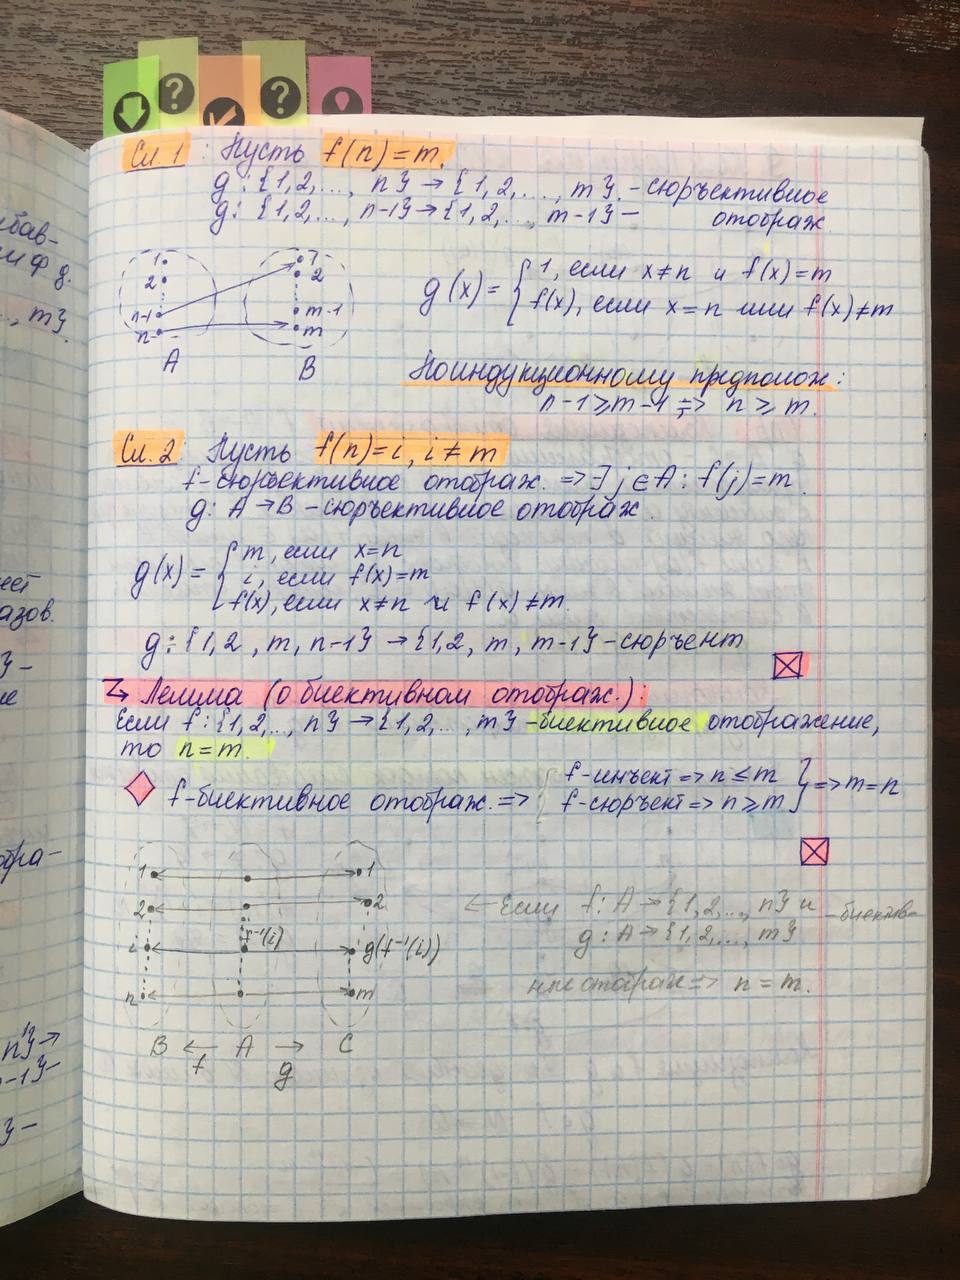 Сл. 1 : Пусть f(n) = m.
g : {1,2,..., n} → {1,2,..., m}. - сюръективное
g: {1,2,..., n-1} → {1,2,..., m-1} - отображ.
1
2
n-1
n
A
1
2
m-1
m
B
g(x) = { 1, если x≠n и f(x)=m
f(x), если x=n или f(x)≠m
По индукционному предполож:
n-1≥m-1 => n≥m.
Сл. 2: Пусть f(n)=i, i≠m
f-сюръективное отображ. => ∃ j∈A : f(j)=m.
g: A→B - сюръективное отображ.
g(x) = { m, если x=n
i, если f(x)=m
f(x), если x≠n и f(x)≠m.
g: {1,2, m, n-1} → {1,2, m, m-1} - сюръект
Лемма (о биективном отображ.):
Если f: {1,2,..., n} → {1,2,..., m} - биективное отображение,
то n=m.
f-биективное отображ. => { f-инъект => n≤m
f-сюръект => n≥m } => m=n
1
1
2
2
i
f⁻¹(i)
g(f⁻¹(i))
n
m
B ← A → C
f
g
← Если f: A→{1,2,..., n} и
g: A→{1,2,..., m}
- биектив-
ные отображ => n=m.
бав-
g.
..., m}
азов.
}-
бра-
n}→
n-1}-
}-